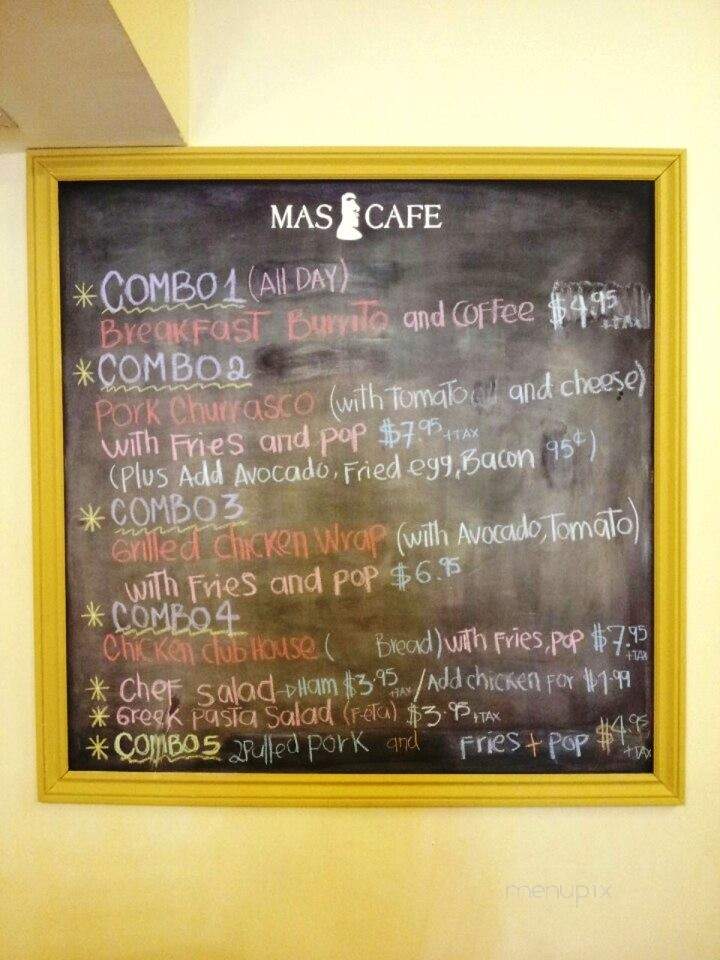 MAS CAFE
* COMBO 1 (All DAY)
Breakfast Burrito and Coffee $4.95 +TAX
* COMBO 2
Pork Churrasco (with Tomato and cheese)
with Fries and pop $7.95 +TAX
(Plus Add Avocado, Fried egg, Bacon 95¢)
* COMBO 3
Grilled Chicken Wrap (with Avocado, Tomato)
with Fries and pop $6.95
* COMBO 4
Chicken club House ( Bread) with Fries, pop $7.95 +TAX
* Chef Salad → Ham $3.95 +TAX / Add chicken For $1.99
* Greek Pasta Salad (Feta) $3.95 +TAX
* COMBO 5 2 Pulled pork and Fries + pop $4.95 +TAX
menupix